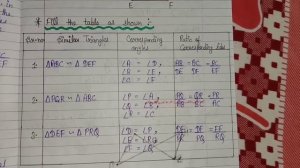 E F
* Fill the table as shown :
Similar Triangles Corresponding angles Ratio of Corresponding Sides
1. ΔABC ~ ΔDEF ∠A = ∠D, AB = BC = AC
∠B = ∠E, DE EF DF
∠C = ∠F
2. ΔPQR ~ ΔABC ∠P = ∠A, PQ = QR = PR
∠Q = ∠B, AB BC AC
∠R = ∠C
3. ΔDEF ~ ΔPRQ ∠D = ∠P, DE = DF = EF
∠E = ∠R, PR PQ RQ
∠F = ∠Q